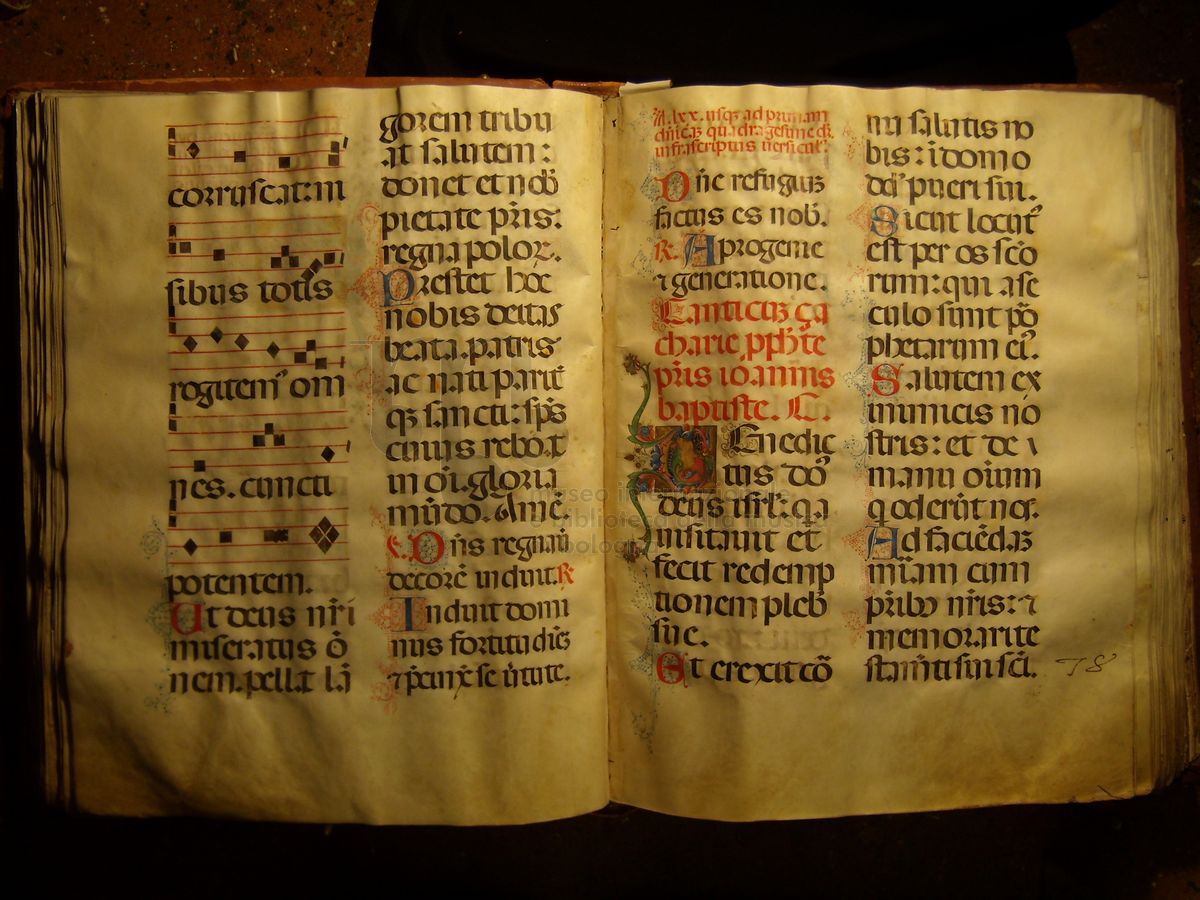 corruscat: in
sibus totis
rogitem⁹ om
nes. cuncti
potentem.
Ut deus nr̄i
miseratus ō
nem. pellat lā
gorem tribu
at salutem:
donet et nob̄
pietate pr̄is:
regna poloꝝ.
Prestet hoc
nobis deitas
beata. patris
ac nati parit̄
qꝫ sancti: sp̄s
cuius reboat
in oī. gloria
mūdo. Amē.
Dn̄s regnauit
decorē induit. ℟
Induit domi
nus fortitudīe
⁊ p̄cinxit se
lxx. usqꝫ ad primam
dn̄icaꝫ quadragesime dr̄
infrascriptus
Dn̄e refugiuꝫ
factus es nob̄.
℟. A progenie
⁊ generatione.
Canticuꝫ ça
charie p̱ph̄te
pr̄is ioannis
baptiste. C.
Benedic
tus dō
deus isrl̄: q̄a
uisitauit et
fecit redemp
tionem pleb̄
sue.
Et erexit cō
nu salutis no
bis: ī domo
dd̄ pueri sui.
Sicut locut⁹
est per os sc̄o
rum: qui a se
culo sunt p̱o
phetarum ei⁹.
Salutem ex
inimicis no
stris: et de
manu oīum
q̄ oderūt nos.
Ad faciēdaꝫ
mīam cum
pr̄ibꝫ nr̄is: ⁊
memorari te
stamēti sui sc̄i.
78
museo internazionale
e biblioteca della musica
bologna